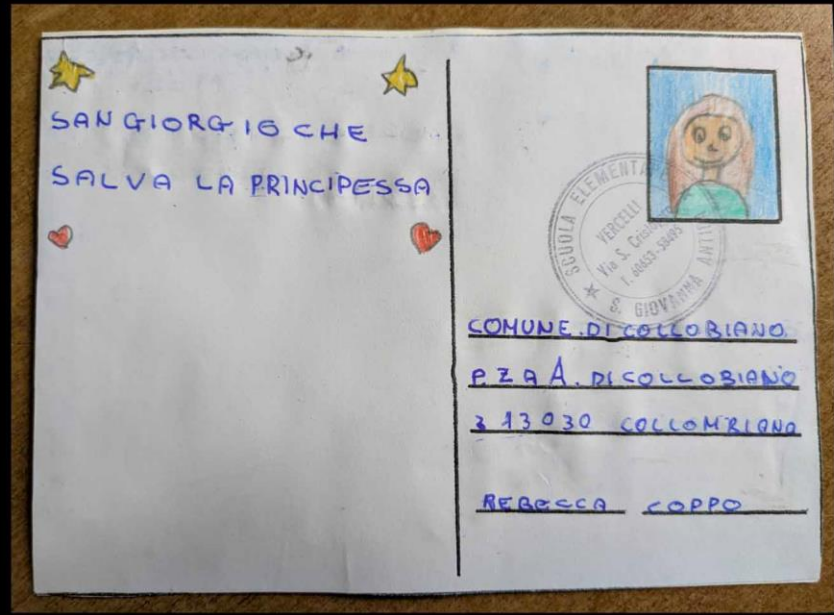 SAN GIORGIO CHE
SALVA LA PRINCIPESSA
SCUOLA ELEMENTA
S. GIOVANNA ANTI
VERCELLI
Via S. Cristo
T. 60653-58495
COMUNE.DI COLLOBIANO
P.ZA A. DI COLLOBIANO
3 13030 COLLOMBIANO
REBECCA COPPO